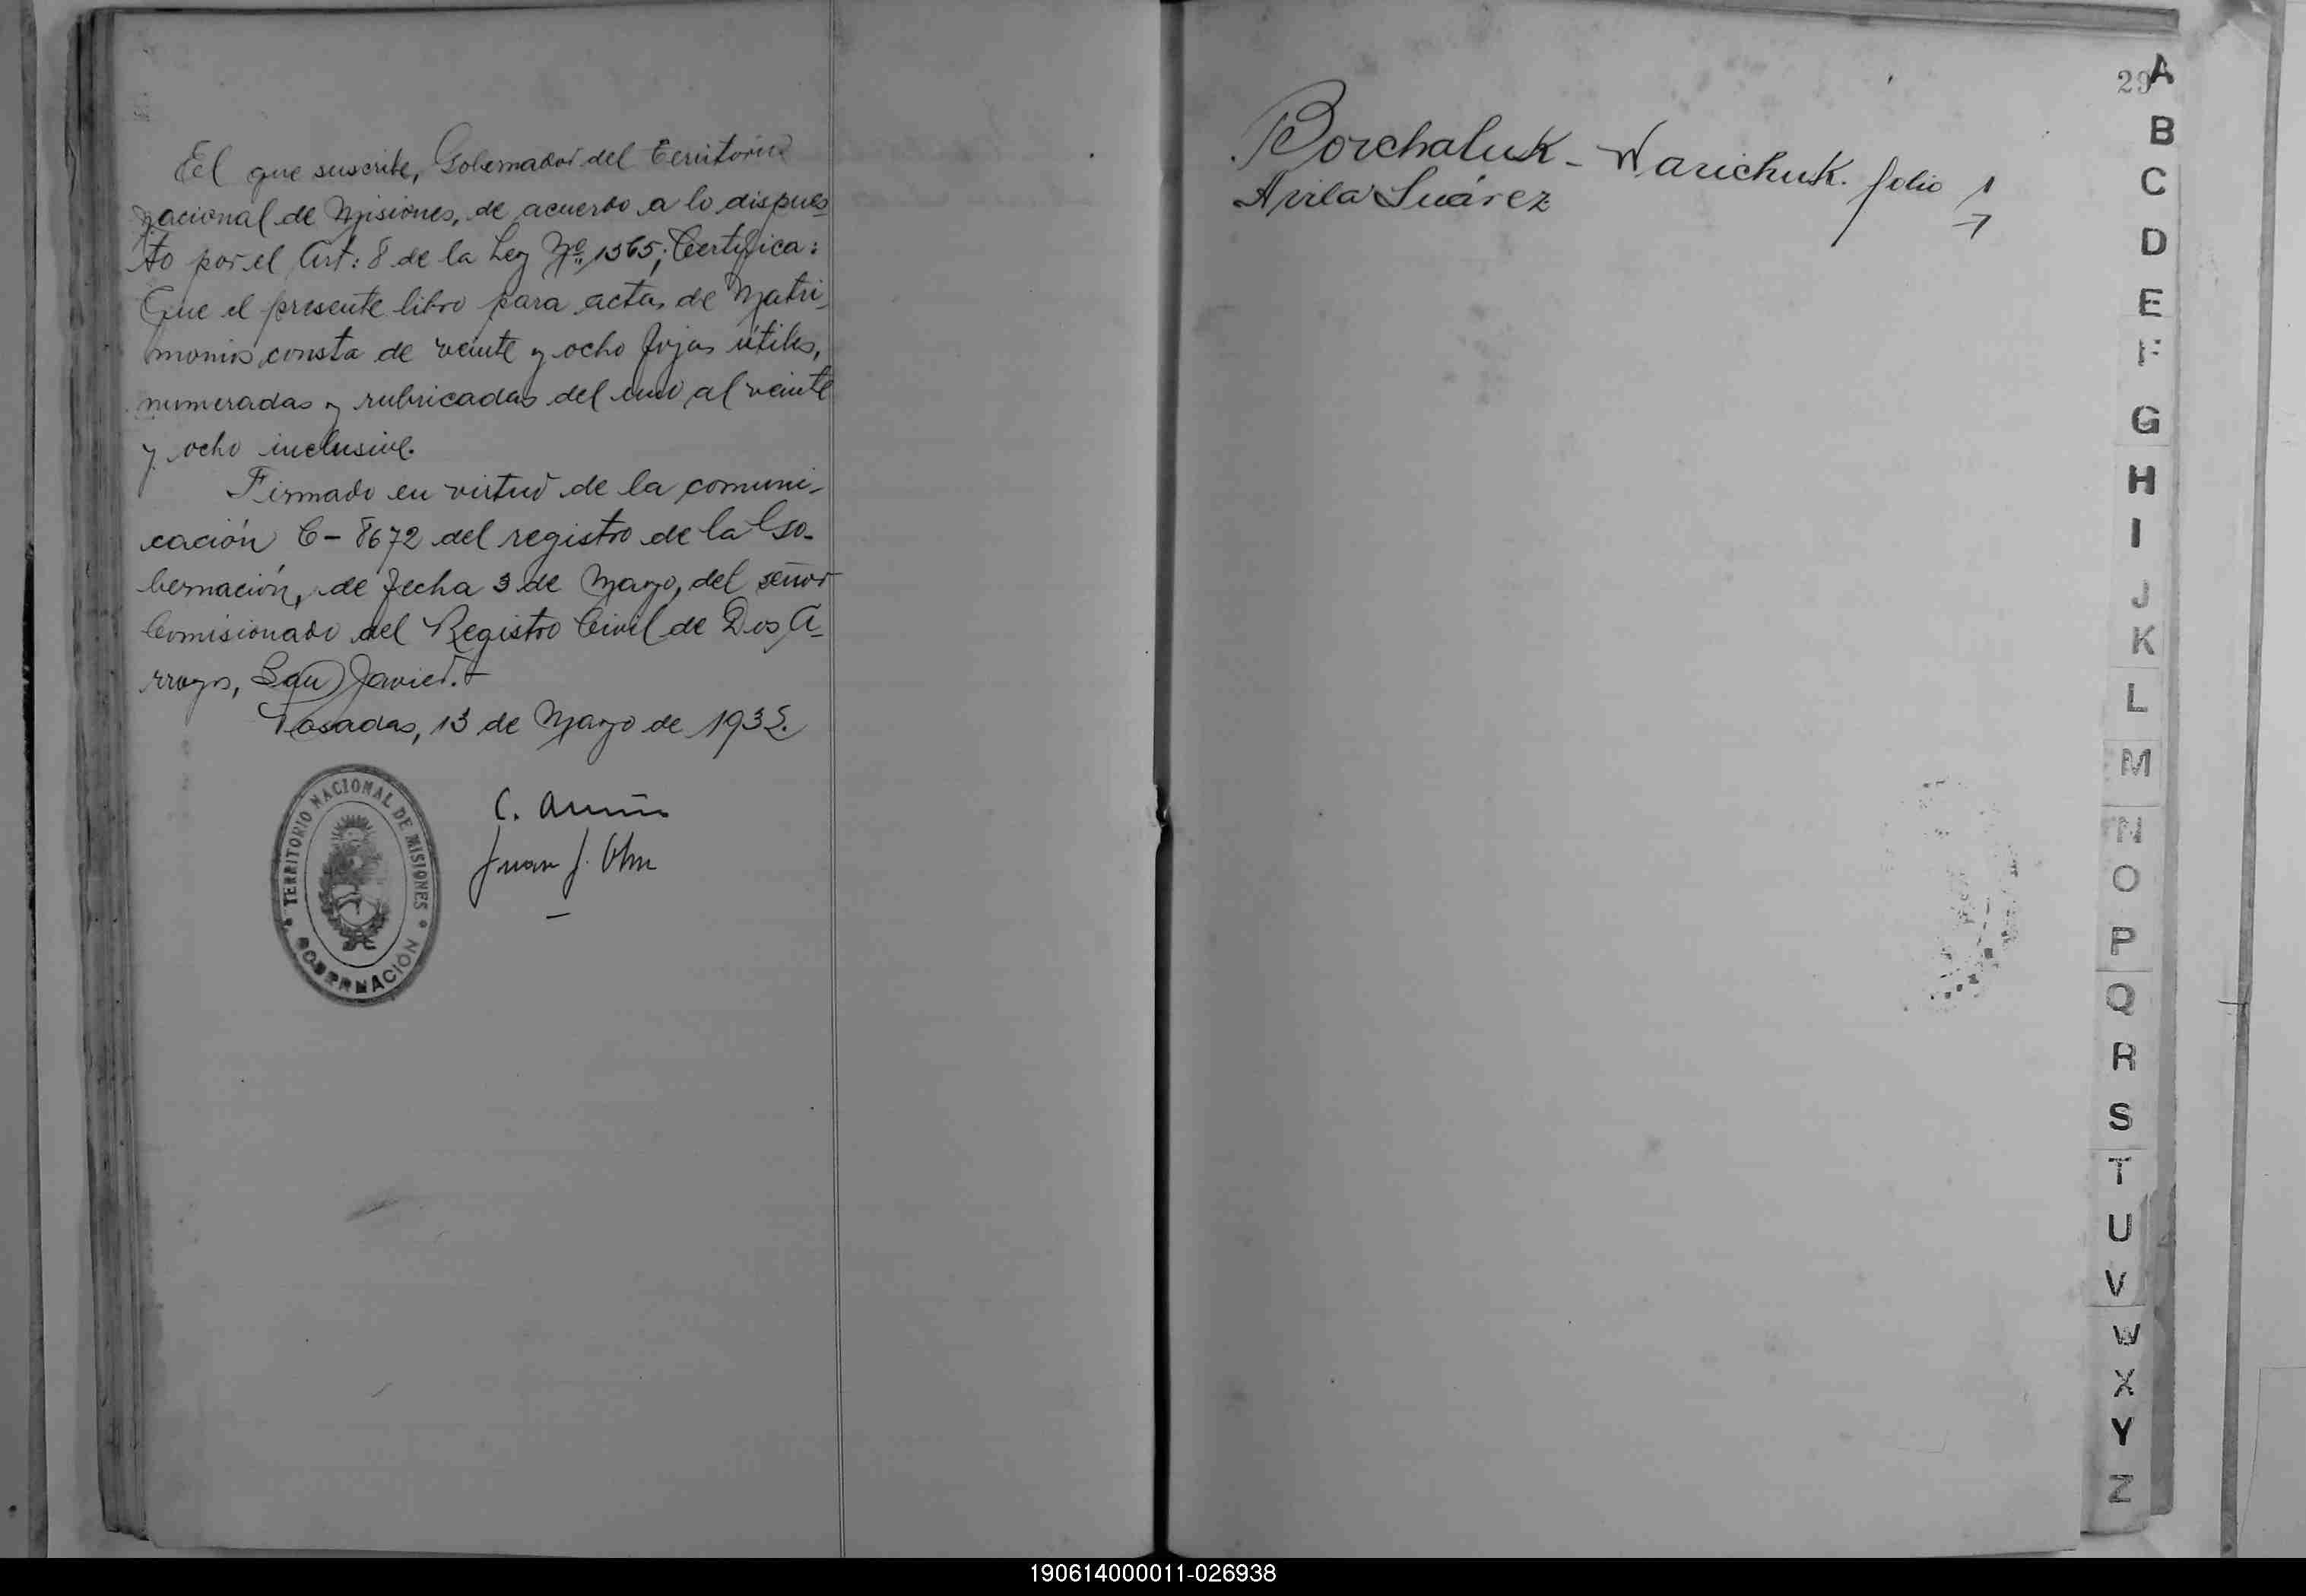 El que suscribe, Gobernador del Territorio
nacional de Misiones, de acuerdo a lo dispues
to por el Art: 8 de la Ley Nº 1565; Certifica:
Que el presente libro para actas de Matri-
monios consta de veinte y ocho fojas útiles,
numeradas y rubricadas del uno al veinte
y ocho inclusive.
Firmado en virtud de la comuni-
cación C-8672 del registro de la Go-
bernación, de fecha 3 de Mayo, del señor
Comisionado del Registro Civil de Dos A-
rroyos, San Javier.
Posadas, 13 de Mayo de 1935.
C.
Juan J.
TERRITORIO NACIONAL DE MISIONES
GOBERNACIÓN
29
Borchaluk - Warichuk. folio 1
Avila Suárez 7
A
B
C
D
E
F
G
H
I
J
K
L
M
N
O
P
Q
R
S
T
U
V
W
X
Y
Z
190614000011-026938